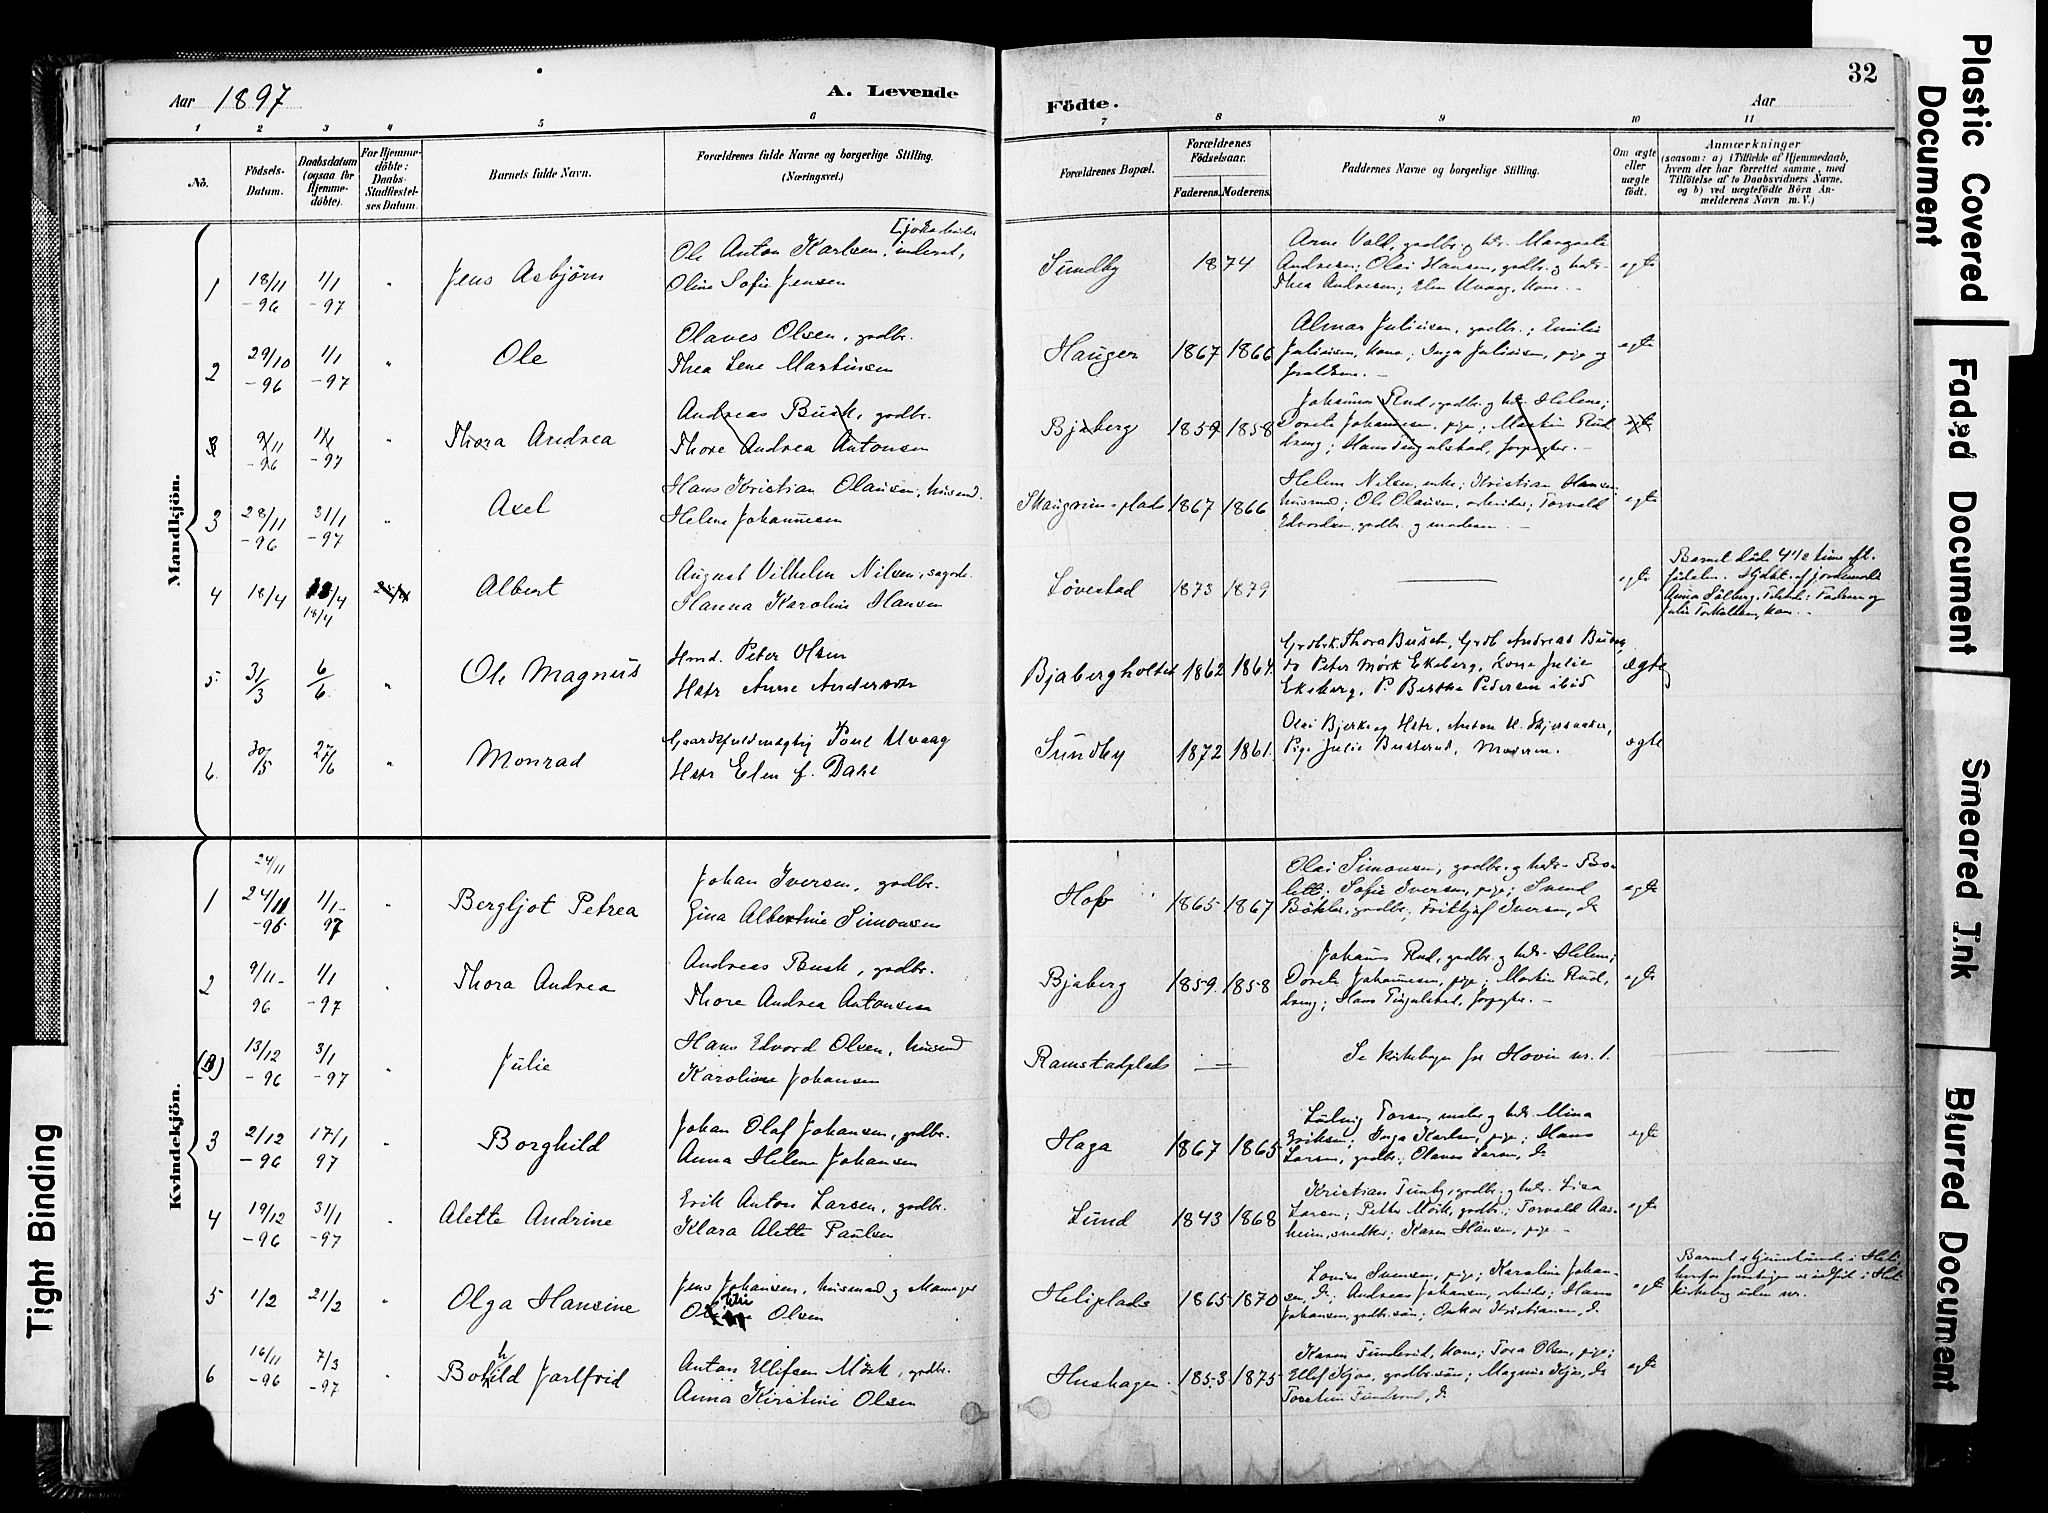 Aar 1897
A. Levende
Födte.
Aar
32
1 2 3 4 5 6 7 8 9 10 11
No.
Födsels-
Datum.
Daabsdatum
(ogsaa for
Hjemme-
döbte).
For Hjemme-
döbte:
Daabs-
Stadfæstel-
ses Datum.
Barnets fulde Navn.
Forældrenes fulde Navne og borgerlige Stilling.
(Næringsvei.)
Forældrenes Bopæl.
Forældrenes
Födselsaar.
Faderens. Moderens.
Faddernes Navne og borgerlige Stilling.
Om ægte
eller
uægte
födt.
Anmærkninger
(saasom: a) i Tilfælde af Hjemmedaab,
hvem der har forrettet samme, med
Tilföielse af to Daabsvidners Navne,
og b) ved uægtefödte Börn An-
melderens Navn m. V.)
Mandkjön.
1 18/11 -96 1/1 -97 " Jens Asbjörn
Ole Anton Karlsen, inderst,
Oline Sofie Jensen
Sundby 1874
Arne Vold, gaardbr. og hstr. Margrete
Andresen; Olai Hansen, gaardbr. og hstr.
Thea Andresen; Elen Uvaag, kone. -
egte
2 29/10 -96 1/1 -97 " Ole
Olaves Olsen, gaardbr.
Thea Lene Martinsen
Haugen 1867 1866
Almar Juliusen, gaardbr.; Emilie
Juliusen, kone; Inga Juliusen, pige og
forældrene. -
egte
3 9/11 -96 1/1 -97 " Thora Andrea
Andreas Busk, gaardbr.
Thore Andrea Antonsen
Bjaberg 1859 1858
Johannes Rud, gaardbr. og hstr. Helene;
Dorete Johannesen, pige; Martin Rud,
dreng; Hans Tingulstad, forpagter. -
egte
3 28/11 -96 31/1 -97 " Axel
Hans Kristian Olausen, husmd.
Helene Johannesen
Skaugrim-plads 1867 1866
Helene Nilsen, enke; Kristian Hansen,
husmd; Ole Olausen, arbeider; Torvald
Edvardsen, gaardbr. og moderen. -
egte
4 18/4 18/4 18/4 Albert
August Vilhelm Nilsen, sagarb.
Hanna Karoline Hansen
Lövestad 1873 1879
egte
Barnet döde 4 1/2 time eft.
födselen. Hjdbt. af jordemoder
Anna Solberg. Tilstede: Faderen og
Julie Torkelsen, kone. -
5 31/3 6/6 " Ole Magnus
Hmd. Peter Olsen
Hstr Anne Andersdtr
Bjabergholtet 1862 1864.
Grdbrk. Thora Busch, Grdb Andreas Busch,
do Peter Mörk Eksberg, Kone Julie
Eksberg, P. Bertha Pedersen ibid
ægte
6. 30/5 27/6 " Monrad
Gaardsfuldmægtig Poul Uvaag
Hstr Elen f. Dahl
Sundby 1872 1861.
Olai Bjerke og Hstr, Anton H. Skjersaaker,
Pige Julie Busterud, Moderen.
ægte
Kvindekjön.
24/11
1 24/11 -96 1/1- 97 " Bergljot Petrea
Johan Iversen, gaardbr.
Gina Albertine Simonsen
Hof 1865 1867
Olai Simonsen, gaardbr. og hstr. Bo-
lette; Sofie Iversen, pige; Svend
Böhler, gaardbr.; Fritjof Iversen, do
egte
2 9/11- 96 1/1 -97 " Thora Andrea
Andreas Busk, gaardbr.
Thore Andrea Antonsen
Bjaberg 1859. 1858
Johannes Rud, gaardbr. og hstr. Helene;
Dorete Johannesen, pige; Martin Rud,
dreng; Hans Tingulstad, forpagter. -
egte
13/12 -96 3/1 -97 " Julie
Hans Edvard Olsen, husmd
Karoline Johansen
Ramstadplads
Se kirkebogen for Hovin nr. 1.
3 2/12 -96 17/1 97 " Borghild
Johan Olaf Johansen, gaardbr.
Anna Helene Johansen
Haga 1867 1865
Ludvig Torsen, maler og hstr. Mina
Eriksen; Inga Karlsen, pige; Hans
Larsen, gaardbr.; Olaves Larsen, do
egte
4 19/12 -96 31/1 -97 " Alette Andrine
Erik Anton Larsen, gaardbr.
Klara Alette Paulsen
Lund 1843 1868
Kristian Tunby, gaardbr. og hstr. Lisa
Larsen; Petter Mörk, gaardbr.; Torvald Aas-
heim, snedker; Karen Hansen, pige -
egte
5 1/2 21/2 " Olga Hansine
Jens Johansen, husmand og
Olsen
Heliplads 1865 1870
Lovise Svensen, pige; Karoline Johan-
sen, do; Andreas Johansen, arbeider; Hans
Johansen, gaardbr.sön; Oskar Kristiansen, do
egte
6 16/11 -96 7/3 -97 " Bohild Jarlfrid
Anton Ellifsen Mörk, gaardbr.
Anna Kirstine Olsen
Hushagen. 1853 1875
Karen Tunderud, kone; Tora Olsen, pige;
Ellef Kjos, gaardbr.sön; Magnus Kjos, do
Torstein Tunderud, do
egte
Plastic Covered
Document
Faded Document
Smeared Ink
Blurred Document
Tight Binding